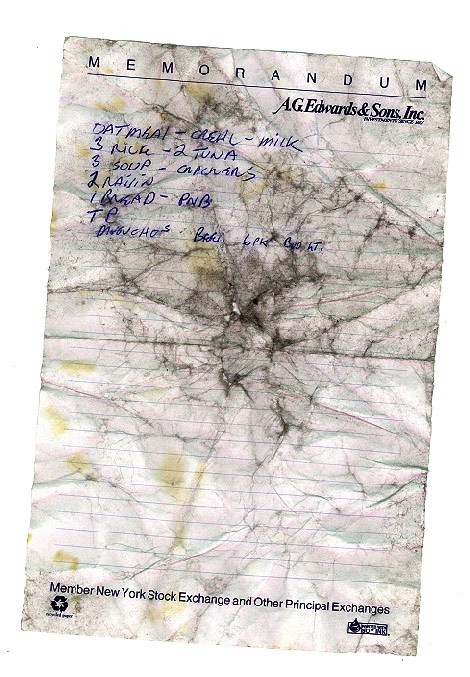 MEMORANDUM
A.G. Edwards & Sons, Inc.
INVESTMENTS SINCE 1887
OATMEAL - CREAL - MILK
3 RICE - 2 TUNA
3 SOUP - CRACKERS
2 RAISIN
1 BREAD - PNB
TP
6 PK BUD LT.
Member New York Stock Exchange and Other Principal Exchanges
recycled paper